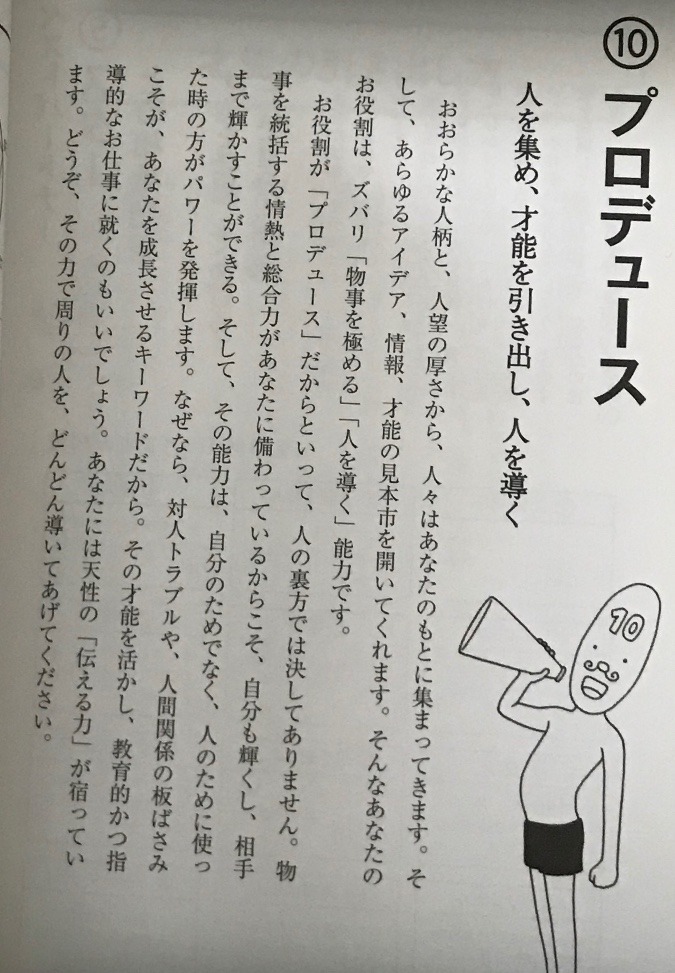 ⑩ プロデュース
人を集め、才能を引き出し、人を導く
おおらかな人柄と、人望の厚さから、人々はあなたのもとに集まってきます。そ
して、あらゆるアイデア、情報、才能の見本市を開いてくれます。そんなあなたの
お役割は、ズバリ「物事を極める」「人を導く」能力です。
お役割が「プロデュース」だからといって、人の裏方では決してありません。物
事を統括する情熱と総合力があなたに備わっているからこそ、自分も輝くし、相手
まで輝かすことができる。そして、その能力は、自分のためでなく、人のために使っ
た時の方がパワーを発揮します。なぜなら、対人トラブルや、人間関係の板ばさみ
こそが、あなたを成長させるキーワードだから。その才能を活かし、教育的かつ指
導的なお仕事に就くのもいいでしょう。あなたには天性の「伝える力」が宿ってい
ます。どうぞ、その力で周りの人を、どんどん導いてあげてください。
10